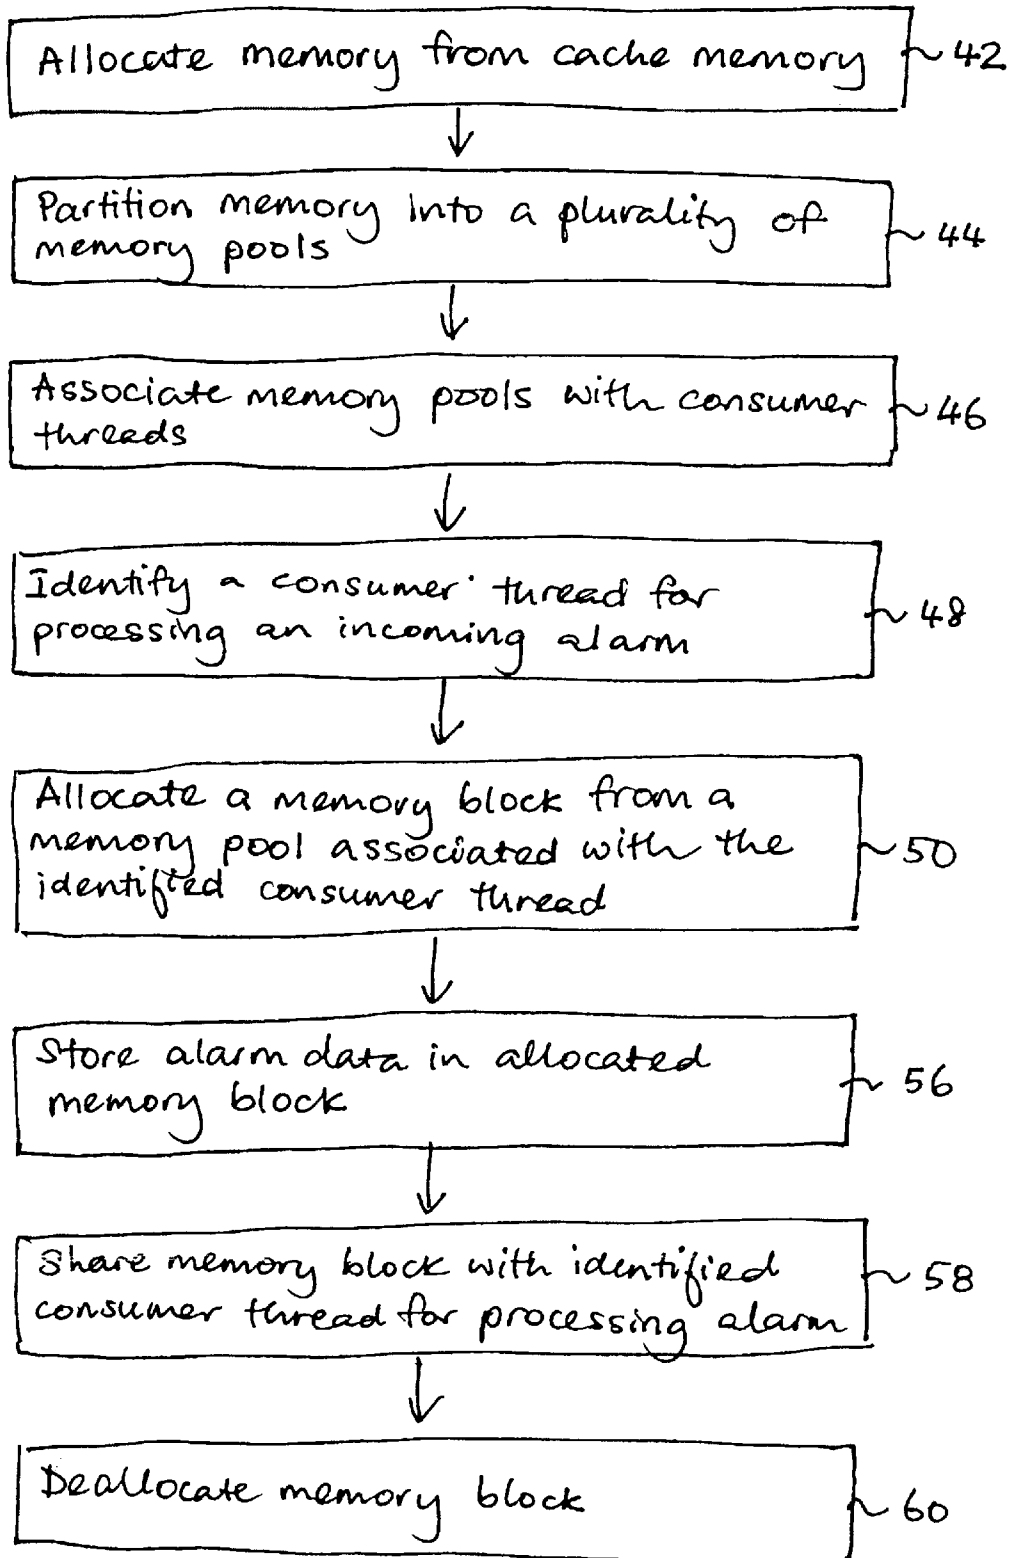 Allocate memory from cache memory 42
Partition memory into a plurality of
memory pools 44
Associate memory pools with consumer
threads 46
Identify a consumer thread for
processing an incoming alarm 48
Allocate a memory block from a
memory pool associated with the
identified consumer thread 50
Store alarm data in allocated
memory block 56
Share memory block with identified
consumer thread for processing alarm 58
Deallocate memory block 60